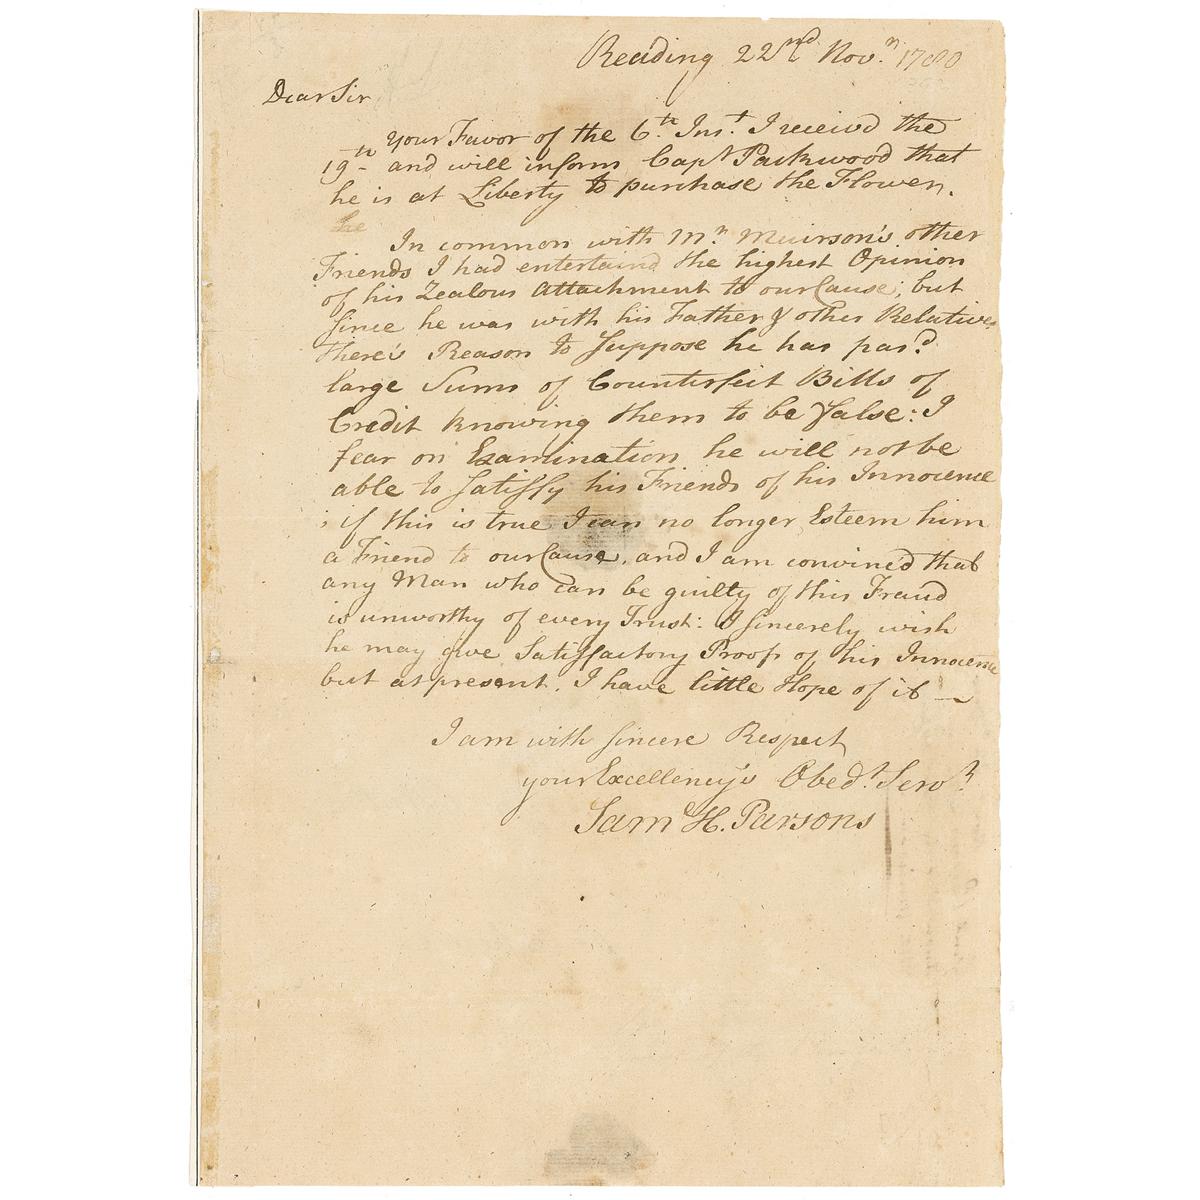 Reading 22nd Nov.r 1780
Dear Sir
Your Favor of the 6th Inst. I receivd the
19th and will inform Capt Packwood that
he is at Liberty to purchase the Flower.
he
In common with Mr Muirson's other
Friends I had entertaind the highest Opinion
of his Zealous Attachment to our Cause; but
since he was with his Father & other Relatives
there's Reason to Suppose he has pas'd
large Sums of Counterfeit Bills of
Credit knowing them to be false: I
fear on Examination he will not be
able to Satisfy his Friends of his Innocence
; if this is true I can no longer Esteem him
a Friend to our Cause, and I am convined that
any Man who can be guilty of this Fraud
is unworthy of every Trust: I sincerely wish
he may give Satisfactory Proof of his Innocence
but at present, I have little Hope of it —
I am with sincere Respect
your Excellency's Obedt. Servt.
Sam H. Parsons